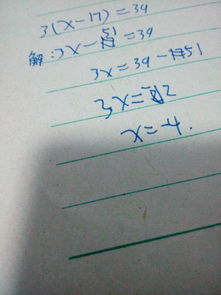 3(x-17)=39
解:3x-51=39
3x=39-51
3x=-12
x=-4.